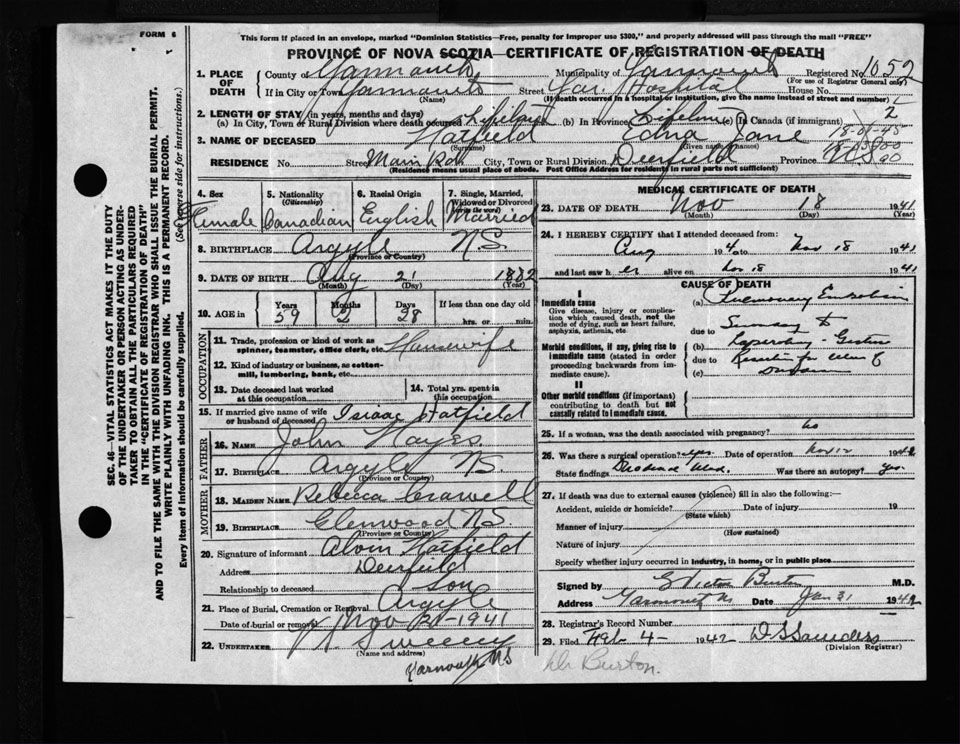 FORM 6
This form if placed in an envelope, marked "Dominion Statistics—Free, penalty for improper use $300," and properly addressed will pass through the mail "FREE"
PROVINCE OF NOVA SCOTIA—CERTIFICATE OF REGISTRATION OF DEATH
1. PLACE OF DEATH County of Yarmouth Municipality of Yarmouth Registered No. 1052
(For use of Registrar General only)
If in City or Town Yarmouth Street Yar. Hospital House No.
(Name) (If death occurred in a hospital or institution, give the name instead of street and number)
2. LENGTH OF STAY (in years, months and days)
(a) In City, Town or Rural Division where death occurred (b) In Province Lifetime (c) In Canada (if immigrant)
3. NAME OF DECEASED Hatfield Edna Jane
(Surname) (Given name or names)
RESIDENCE No. Street Main Road City, Town or Rural Division Deerfield Province N.S.
(Residence means usual place of abode. Post Office Address for residents in rural parts not sufficient)
SEC. 46—VITAL STATISTICS ACT MAKES IT THE DUTY
OF THE UNDERTAKER OR PERSON ACTING AS UNDER-
TAKER TO OBTAIN ALL THE PARTICULARS REQUIRED
IN THE "CERTIFICATE OF REGISTRATION OF DEATH"
AND TO FILE THE SAME WITH THE DIVISION REGISTRAR WHO SHALL ISSUE THE BURIAL PERMIT.
WRITE PLAINLY WITH UNFADING INK. THIS IS A PERMANENT RECORD.
Every item of information should be carefully supplied. (See reverse side for instructions.)
4. Sex 5. Nationality (Citizenship) 6. Racial Origin 7. Single, Married, Widowed or Divorced (write the word)
Female Canadian English Married
8. BIRTHPLACE Argyle N.S.
(Province or Country)
9. DATE OF BIRTH Aug 21 1882
(Month) (Day) (Year)
10. AGE in Years Months Days If less than one day old
59 2 28 hrs. or min.
OCCUPATION
11. Trade, profession or kind of work as spinner, teamster, office clerk, etc. Housewife
12. Kind of industry or business, as cotton-mill, lumbering, bank, etc.
13. Date deceased last worked at this occupation 14. Total yrs. spent in this occupation
15. If married give name of wife or husband of deceased Isaac Hatfield
FATHER
16. NAME John Hayes
17. BIRTHPLACE Argyle N.S.
(Province or Country)
MOTHER
18. MAIDEN NAME Rebecca Crowell
19. BIRTHPLACE Glenwood N.S.
(Province or Country)
20. Signature of informant Alvin Hatfield
Address Deerfield
Relationship to deceased Son
21. Place of Burial, Cremation or Removal Argyle
Date of burial or removal Nov 21-1941
22. UNDERTAKER Sweeny
(Name and address)
Yarmouth N.S.
MEDICAL CERTIFICATE OF DEATH
23. DATE OF DEATH Nov 18 1941
(Month) (Day) (Year)
24. I HEREBY CERTIFY that I attended deceased from:
Aug 194 to Nov 18 1941
and last saw her alive on Nov 18 1941
CAUSE OF DEATH
I
Immediate cause
Give disease, injury or complication which caused death, not the mode of dying, such as heart failure, asphyxia, asthenia, etc
(a) Pulmonary Embolism
due to
Morbid conditions, if any, giving rise to immediate cause (stated in order proceeding backwards from immediate cause).
(b)
due to
(c)
II
Other morbid conditions (if important) contributing to death but not causally related to immediate cause.
25. If a woman, was the death associated with pregnancy? no
26. Was there a surgical operation? yes Date of operation Nov 12 194
State findings Was there an autopsy? yes
27. If death was due to external causes (violence) fill in also the following:—
Accident, suicide or homicide? Date of injury 19
(State which)
Manner of injury
(How sustained)
Nature of injury
Specify whether injury occurred in industry, in home, or in public place
Signed by Victor Burton M.D.
Address Yarmouth NS Date Jan 31 1942
28. Registrar's Record Number
29. Filed Feb 4- 1942 D S Saunders
(Division Registrar)
Dr Burton.